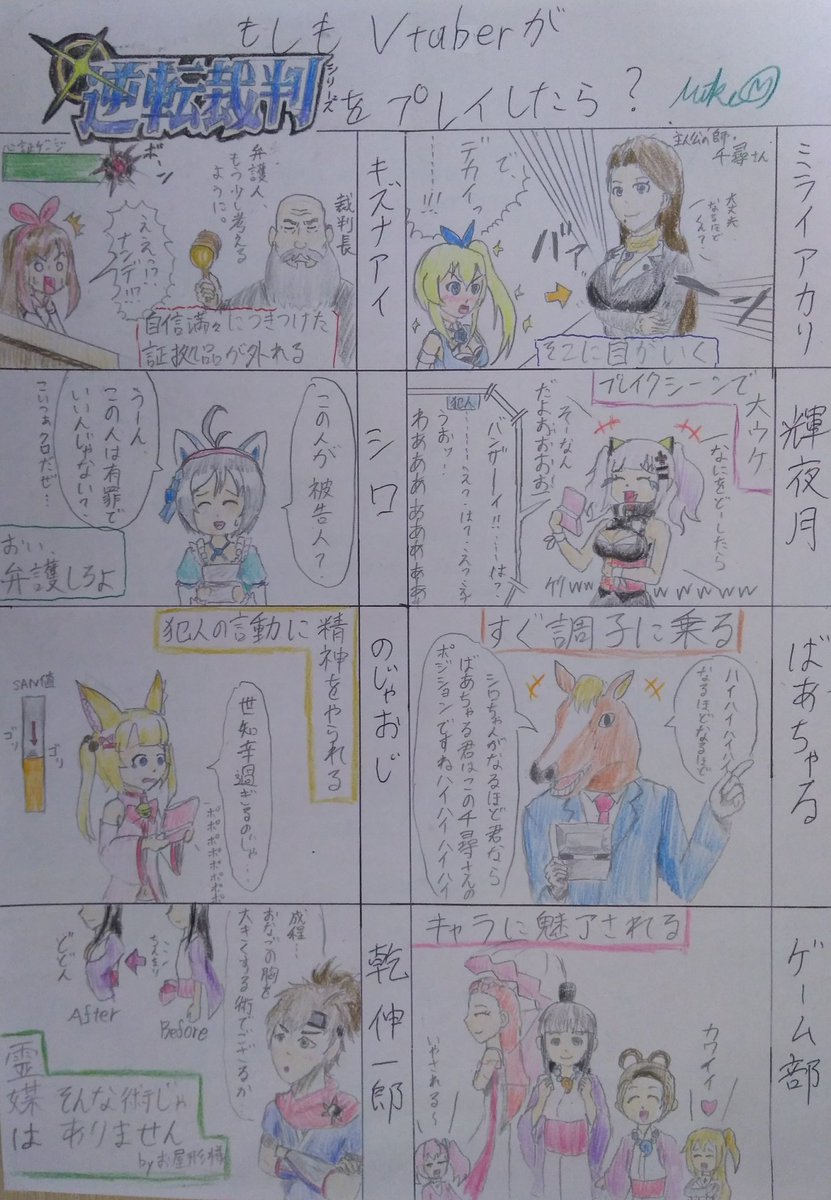 もしもVtuberが
逆転裁判シリーズをプレイしたら?
ミライアカリ
主人公の師・
千尋さん
大丈夫
なるほど
くん?
で、
デカイっ
………!!!
バァーーン
そこに目がいく
キズナアイ
心証ゲージ
ボーン
弁護人、
もう少し考える
ように。
裁判長
ええっ!?
ナンデ!!?
自信満々につきつけた
証拠品が外れる
輝夜月
ブレイクシーンで
大ウケ
なにをどーしたら
そーなん
だよおおおお
犯人
バンザーイ!!……は?
うおッ!
わああああああああ
シロ
この人が被告人?
うーん、
この人は有罪で
いいんじゃない?
こいつぁクロだぜ…
おい、
弁護しろよ
ばあちゃる
すぐ調子に乗る
ハイハイハイハイ
なるほどなるほど
シロちゃんがなるほど君なら
ばあちゃる君はこの千尋さんの
ポジションですねハイハイハイハイ
のじゃおじ
犯人の言動に
精神をやられる
SAN値
ゴリ
ゴリ
世知辛過ぎるのじゃ…
ポポポポポポポ
ゲーム部
キャラに魅了される
カワイイ♥
いやされる〜
乾伸一郎
成程…
おなごの胸を
大きくする術でござるか…
ちんまり
Before
どどん
After
霊媒は
そんな術じゃ
ありません
byお屋形様